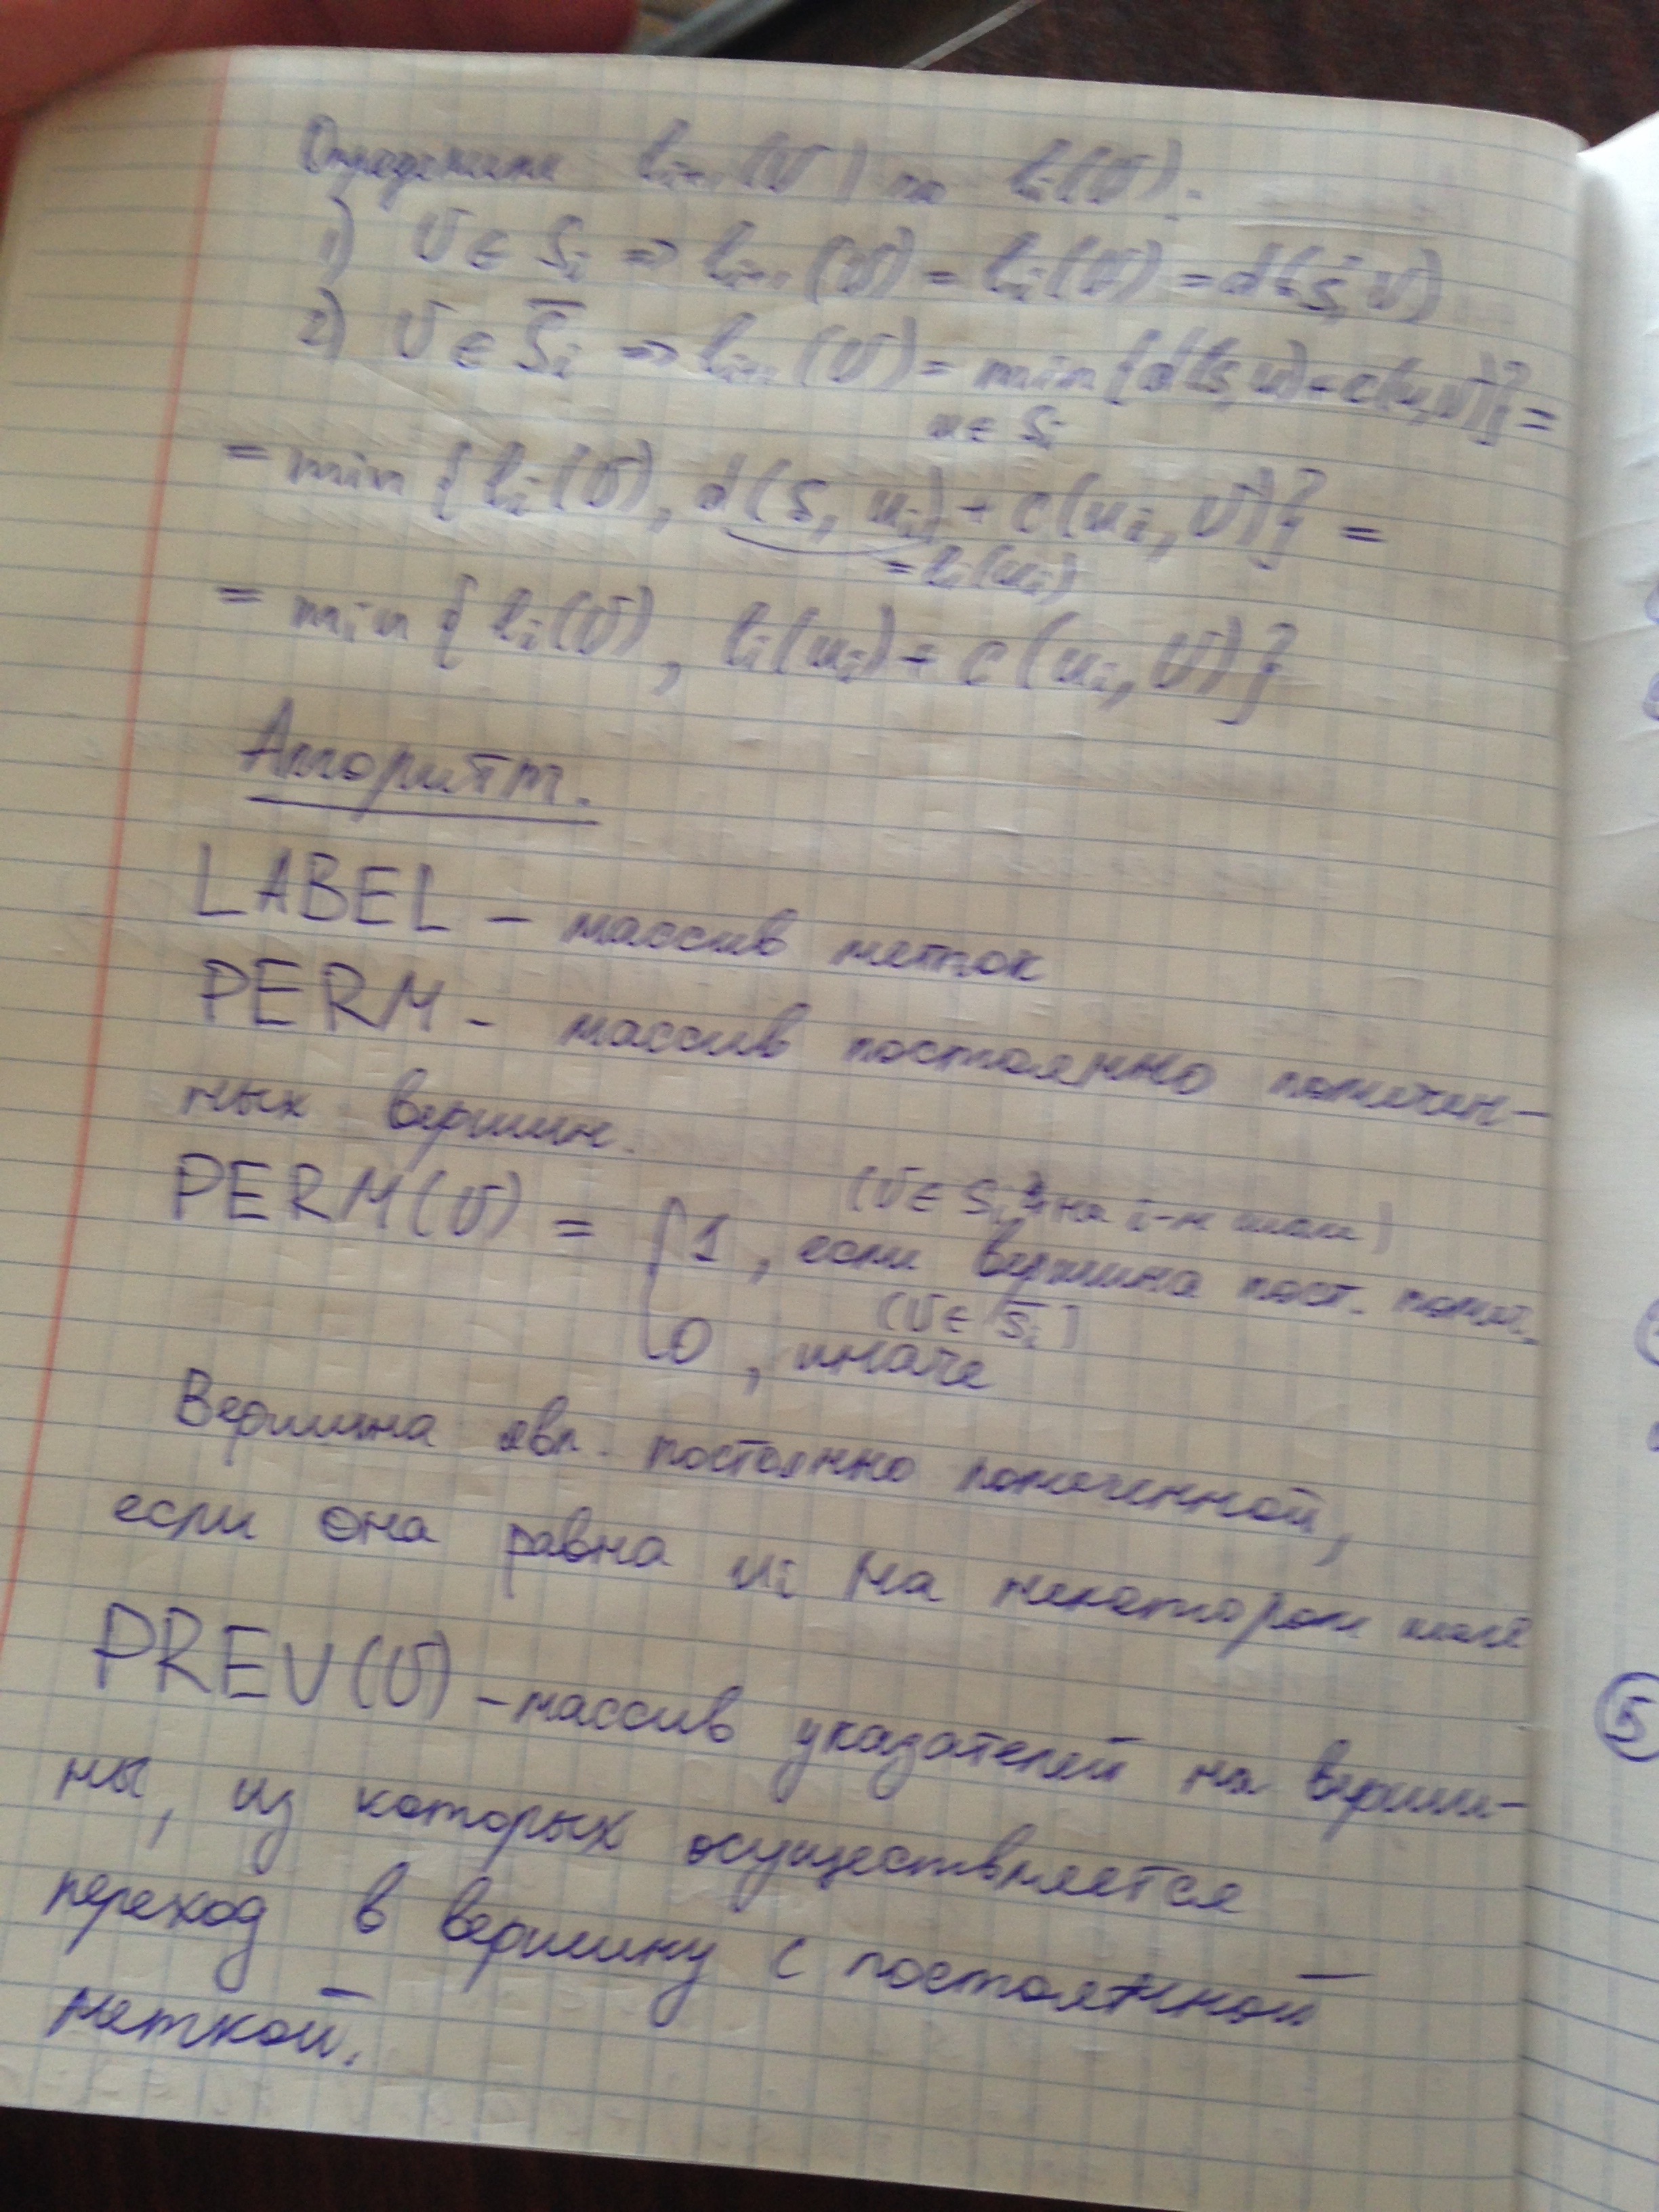 Определим l_{i+1}(v) по l_i(v).
1) v ∈ S_i ⇒ l_{i+1}(v) = l_i(v) = d(s, v)
2) v ∈ S̄_i ⇒ l_{i+1}(v) = min_{u ∈ S_i} {d(s, u) + c(u, v)} =
= min {l_i(v), d(s, u_i) + c(u_i, v)} =
= l_i(u_i)
= min {l_i(v), l_i(u_i) + c(u_i, v)}
Алгоритм.
LABEL – массив меток
PERM – массив постоянно помечен–
ных вершин.
(v ∈ S_i на i-м шаге)
PERM(v) = { 1, если вершина пост. помеч.
(v ∈ S̄_i)
0, иначе
Вершина явл. постоянно помеченной,
если она равна u_i на некотором шаге
PREV(v) – массив указателей на верши–
ны, из которых осуществляется
переход в вершину с постоянной
меткой.
5